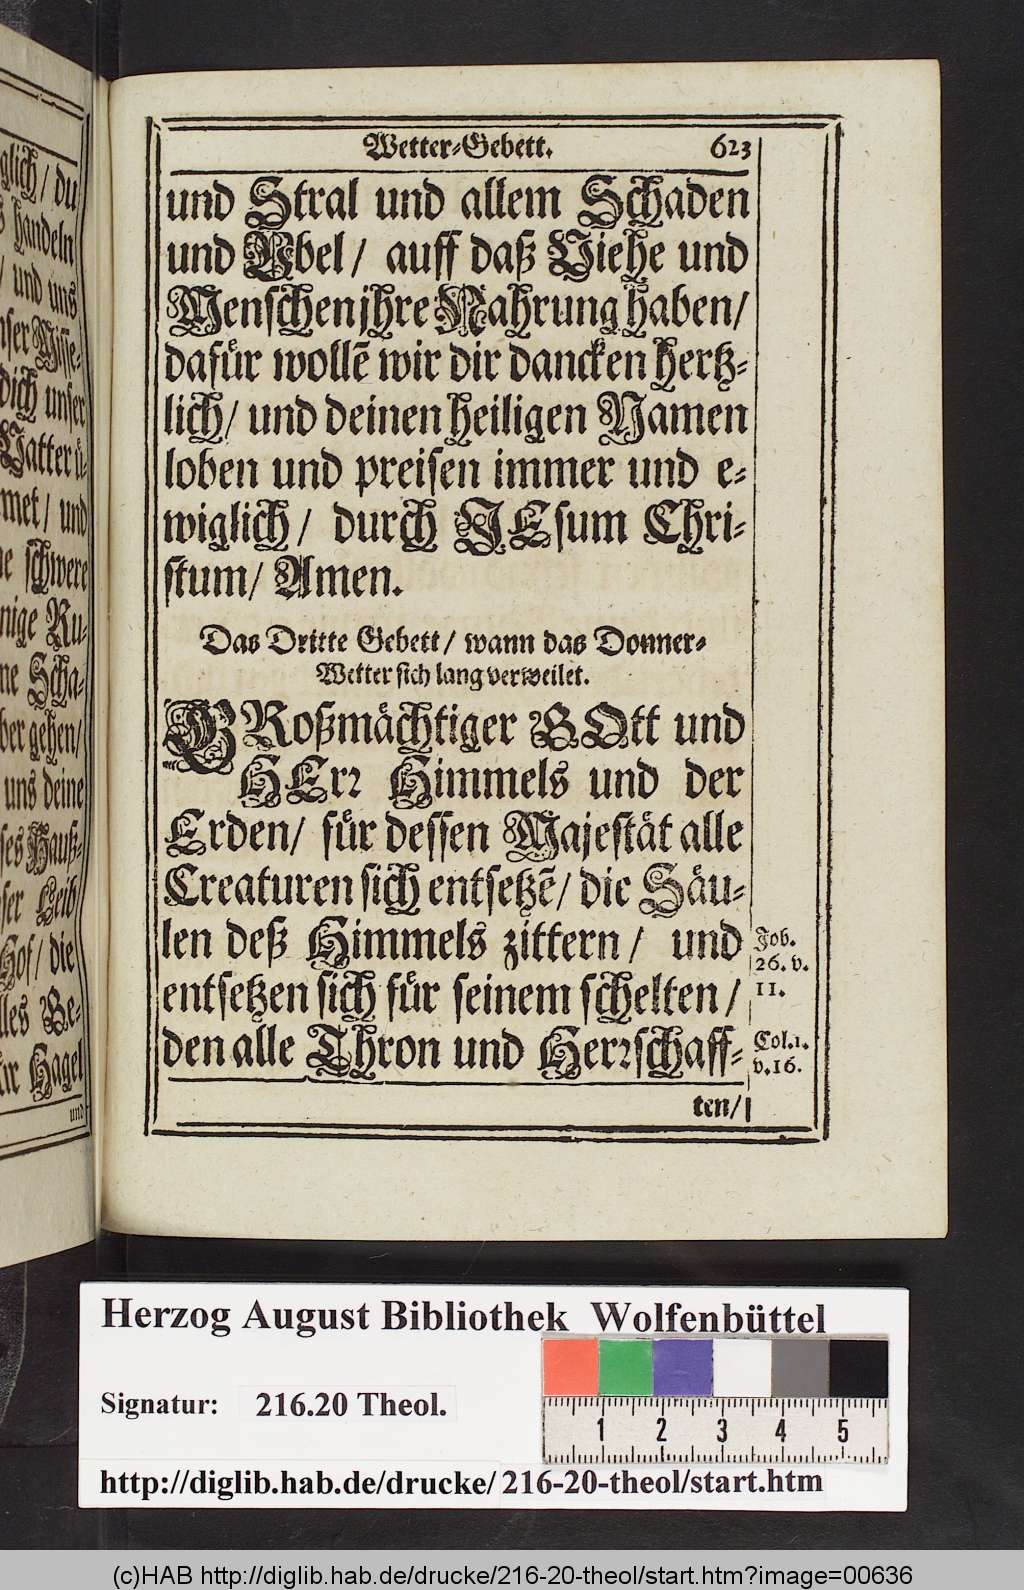 glich/ du
handeln
/ und uns
nser Misse-
dich unser
Vatter ü-
met/ und
ne schwere
nige Ru-
ne Scha-
ber gehen/
uns deine
ses Hauß-
ser Leib
Hof/ die
lles Ge-
ür Hagel
und
Wetter-Gebett. 623
und Stral und allem Schaden
und Vbel/ auff daß Viehe und
Menschen jhre Nahrung haben/
dafür wollẽ wir dir dancken hertz-
lich/ und deinen heiligen Namen
loben und preisen immer und e-
wiglich/ durch JEsum Chri-
stum/ Amen.
Das Dritte Gebett/ wann das Donner-
Wetter sich lang verweilet.
GRoßmächtiger GOtt und
HErꝛ Himmels und der
Erden/ für dessen Majestät alle
Creaturen sich entsetzẽ/ die Säu-
len deß Himmels zittern/ und
entsetzen sich für seinem schelten/
den alle Thron und Herꝛschaff-
ten/
Job.
26. v.
11.
Col. 1.
v. 16.
Herzog August Bibliothek Wolfenbüttel
Signatur: 216.20 Theol.
1 2 3 4 5
http://diglib.hab.de/drucke/216-20-theol/start.htm
(c)HAB http://diglib.hab.de/drucke/216-20-theol/start.htm?image=00636